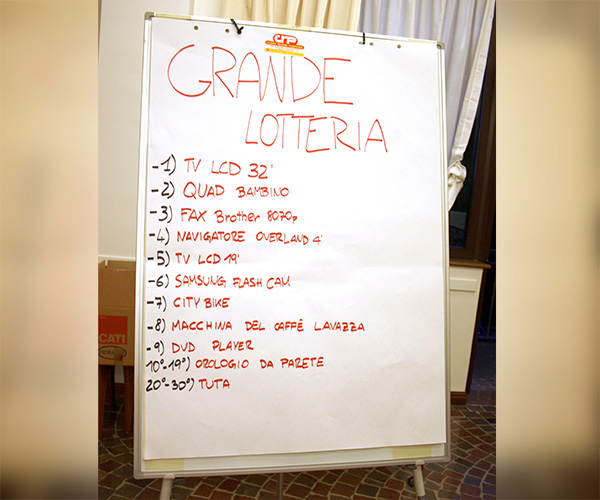 crp
GRANDE
LOTTERIA
-1) TV LCD 32'
-2) QUAD BAMBINO
-3) FAX Brother 8070p
-4) NAVIGATORE OVERLAND 4'
-5) TV LCD 19'
-6) SAMSUNG FLASH CAM
-7) CITY BIKE
-8) MACCHINA DEL CAFFÈ LAVAZZA
-9) DVD PLAYER
10°-19°) OROLOGIO DA PARETE
20°-30°) TUTA
CATI